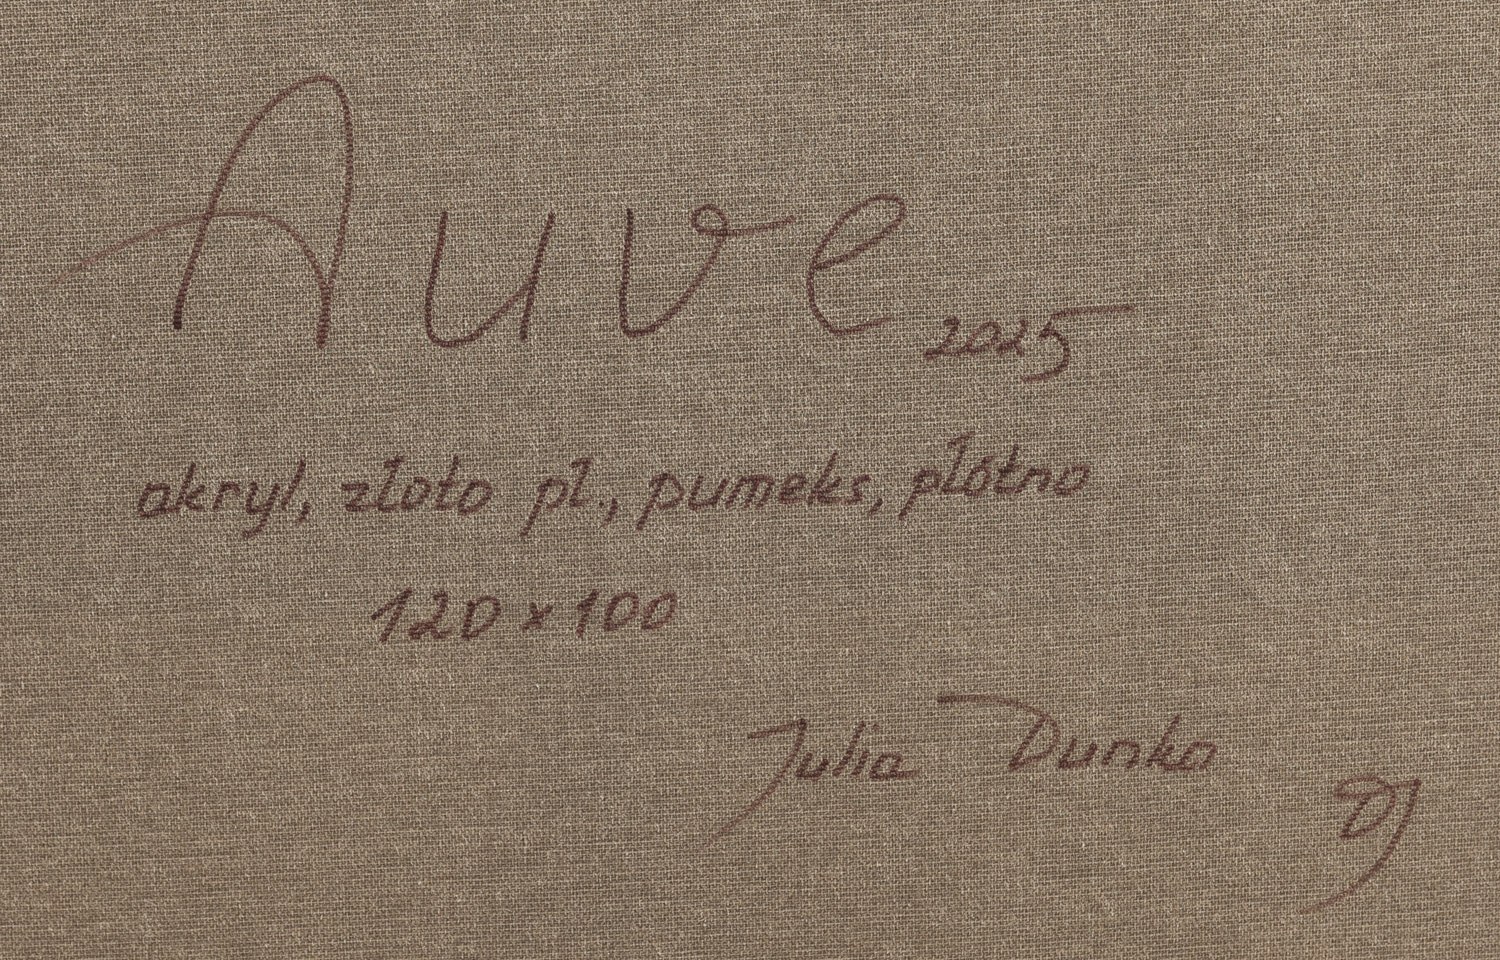 Auve 2025
akryl, złoto pł., pumeks, płótno
120 x 100
Julia Dunko
DJ